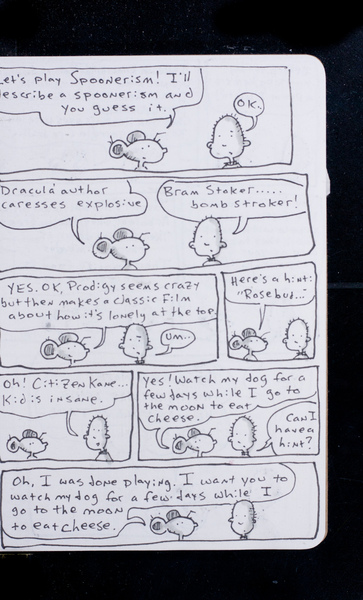 Let's play Spoonerism! I'll
describe a spoonerism and
you guess it.
OK.
Dracula author
caresses explosive
Bram Stoker.....
bomb stroker!
YES. OK, Prodigy seems crazy
but then makes a classic film
about how it's lonely at the top.
Um..
Here's a hint:
"Rosebud..."
Oh! Citizen Kane...
Kid is insane.
Yes! Watch my dog for a
few days while I go to
the moon to eat
cheese.
Can I
have a
hint?
Oh, I was done playing. I want you to
watch my dog for a few days while I
go to the moon
to eat cheese.